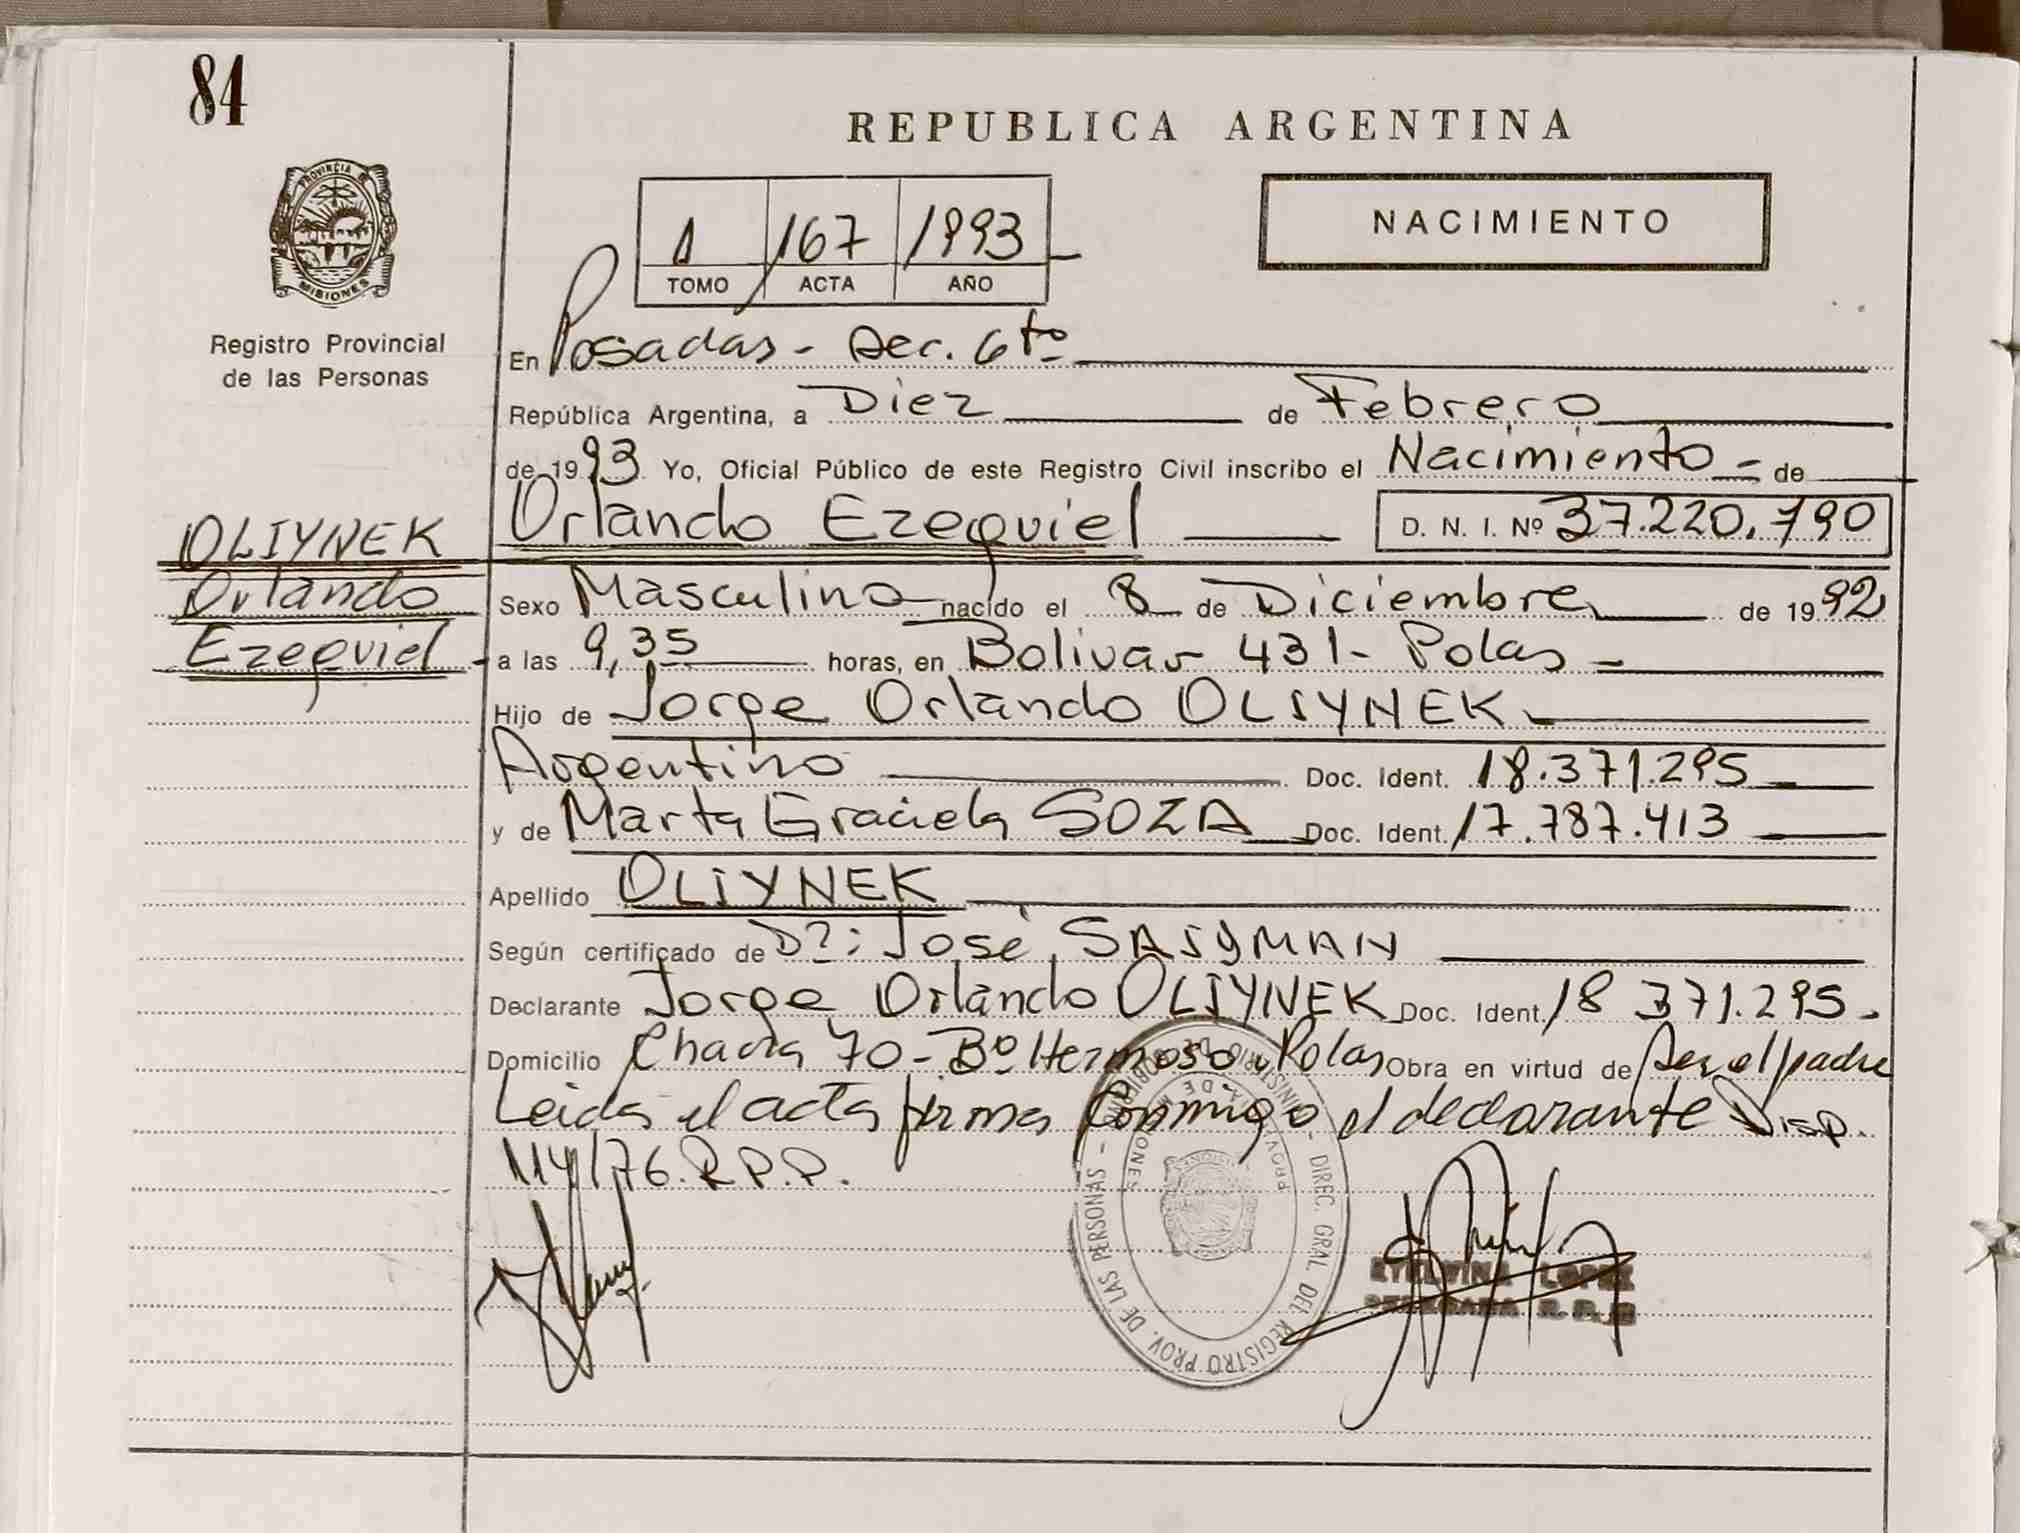 84
REPUBLICA ARGENTINA
PROVINCIA DE
MISIONES
1 167 1993
TOMO ACTA AÑO
NACIMIENTO
Registro Provincial
de las Personas
En Posadas - Sec. 6ta
República Argentina, a Diez de Febrero
de 1993 Yo, Oficial Público de este Registro Civil inscribo el Nacimiento - de
Orlando Ezequiel D. N. I. Nº 37.220.790
OLIYNEK
Orlando
Ezequiel
Sexo Masculino nacido el 8 de Diciembre de 1992
a las 9,35 horas, en Bolivar 431 - Pdas -
Hijo de Jorge Orlando OLIYNEK
Argentino Doc. Ident. 18.371.295
y de Marta Graciela SOZA Doc. Ident. 17.787.413
Apellido OLIYNEK
Según certificado de Dr: José SAIYMAN
Declarante Jorge Orlando OLIYNEK Doc. Ident. 18 371.295.
Domicilio Chacra 70 - Bº Hermoso - Pdas Obra en virtud de Ser el padre
Leida el acta firma Conmigo el declarante Disp.
114/76.R.P.P.
MINISTERIO DE GOBIERNO - DIREC. GRAL. DEL REGISTRO PROV. DE LAS PERSONAS -
PROVINCIA DE MISIONES
LOPEZ